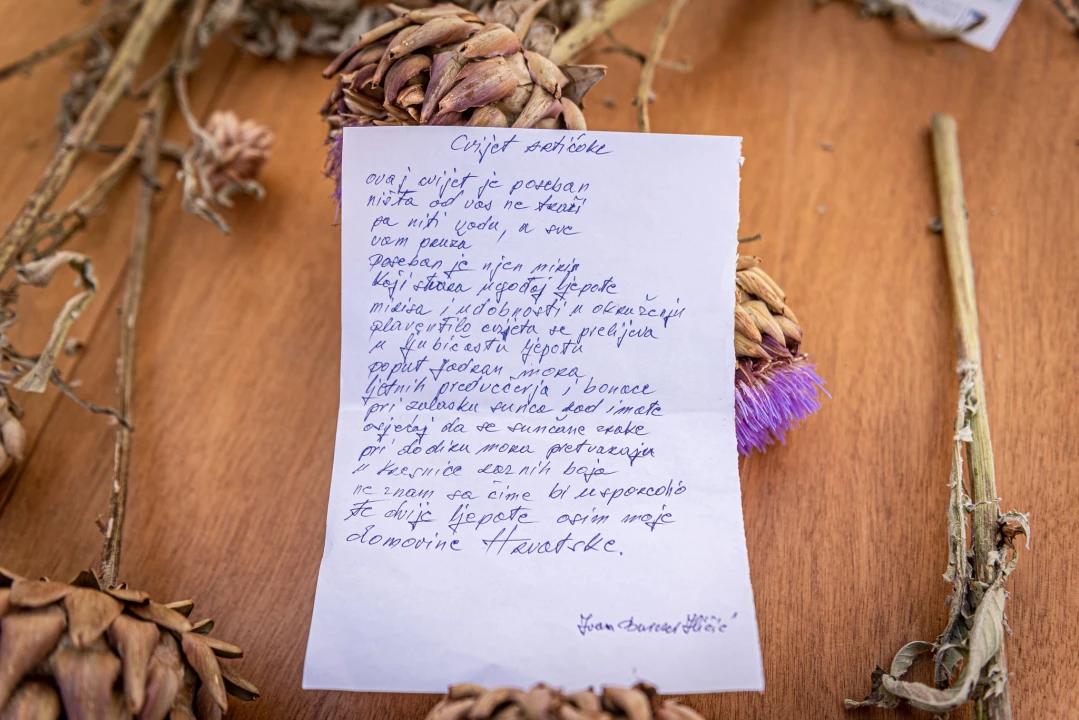 Cvijet artičoke
ovaj cvijet je poseban
ništa od vas ne traži
pa niti vodu, a sve
vam pruža
poseban je njen miris
koji stvara ugođaj ljepote
mirisa i udobnosti u okruženju
plavetnilo cvijeta se prelijeva
u ljubičastu ljepotu
poput Jadran mora
ljetnih predvečerja i bonace
pri zalasku sunca kad imate
osjećaj da se sunčane zrake
pri dodiru mora pretvaraju
u kresnice raznih boja
ne znam sa čime bi usporedio
te dvije ljepote osim moje
domovine Hrvatske.
Ivan Iličić